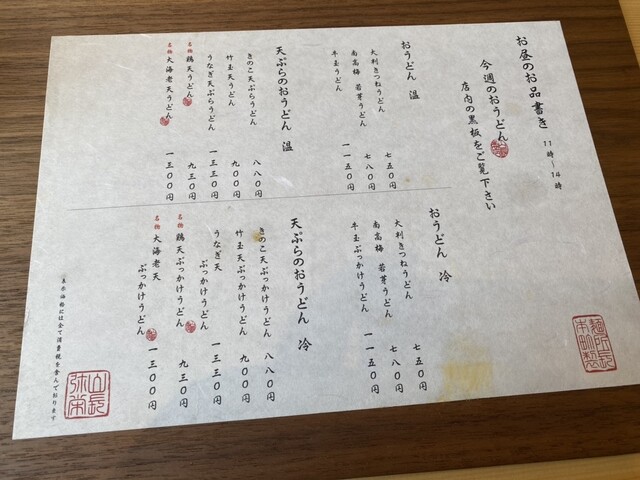 お昼のお品書き 11時〜14時
今週のおうどん
店内の黒板をご覧下さい
おうどん 温
大判きつねうどん 七五〇円
南高梅 若芽うどん 七八〇円
牛玉うどん 一一五〇円
天ぷらのおうどん 温
きのこ天ぷらうどん 八八〇円
竹玉天うどん 九〇〇円
うなぎ天ぷらうどん 一三三〇円
名物 鶏天うどん 九三〇円
名物 大海老天うどん 一三〇〇円
おうどん 冷
大判きつねうどん 七五〇円
南高梅 若芽うどん 七八〇円
牛玉ぶっかけうどん 一一五〇円
天ぷらのおうどん 冷
きのこ天ぶっかけうどん 八八〇円
竹玉天ぶっかけうどん 九〇〇円
うなぎ天
ぶっかけうどん 一三三〇円
名物 鶏天ぶっかけうどん 九三〇円
名物 大海老天
ぶっかけうどん 一三〇〇円
表示価格には全て消費税を含んで居ります